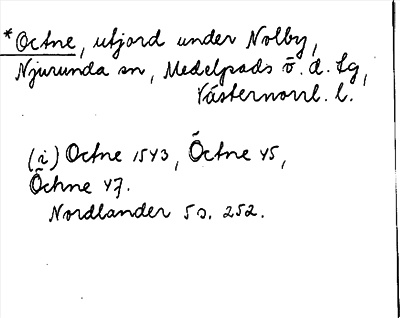 *Octne, utjord under Nolby,
Njurunda sn, Medelpads ö. d. tg,
Västernorrl. l.
(i) Octne 1543, Öctne 45,
Öchne 47.
Nordlander 5 s. 252.